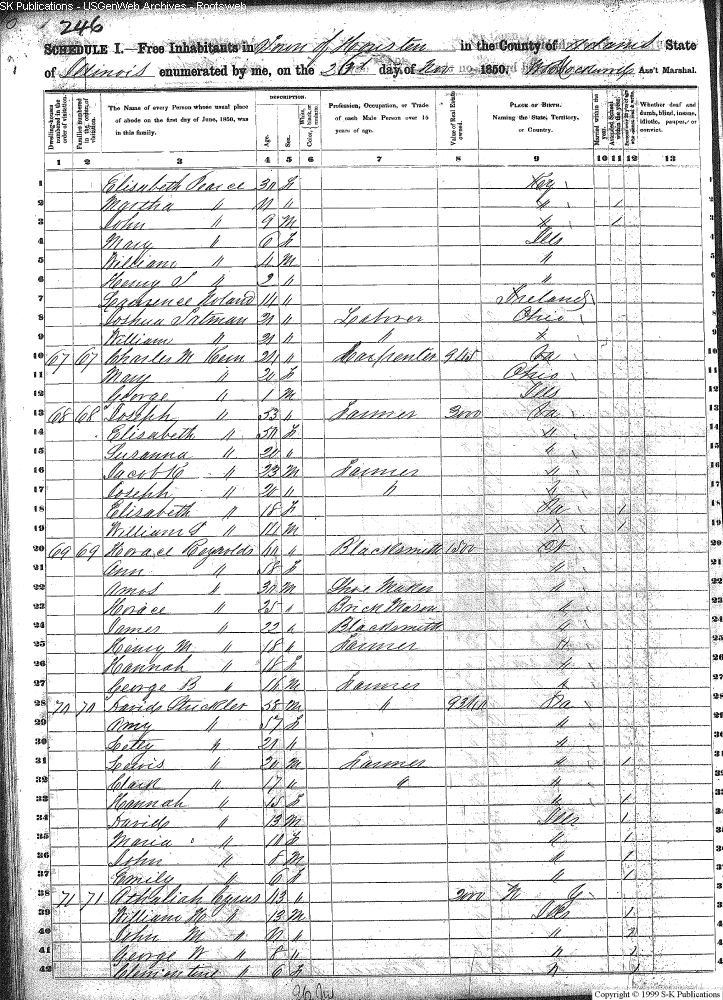 SK Publications - USGenWeb Archives - Rootsweb
246
SCHEDULE I.—Free Inhabitants in Town of Houston in the County of Adams State
of Illinois enumerated by me, on the 23d day of Nov 1850. Ass't Marshal.
Dwelling-houses numbered in the order of visitation.
Families numbered in the order of visitation.
The Name of every Person whose usual place of abode on the first day of June, 1850, was in this family.
DESCRIPTION.
Age.
Sex.
Color, White, black, or mulatto.
Profession, Occupation, or Trade of each Male Person over 15 years of age.
Value of Real Estate owned.
PLACE OF BIRTH. Naming the State, Territory, or Country.
Married within the year.
Attended School within the year.
Whether deaf and dumb, blind, insane, idiotic, pauper, or convict.
1 2 3 4 5 6 7 8 9 10 11 12 13
1 Elisabeth Pearce 30 F Key
2 Martha " 11 " " 1
3 John " 9 M " 1
4 Mary " 6 F Ills
5 William " 4 M "
6 Henry S " 2 " "
7 14 " Ireland
8 Joshua 21 " Laborer Ohio
9 William " 21 " " "
10 67 67 Charles M 24 " Carpenter Pa
11 Mary " 20 F Ohio
12 George " 1 M Ills
13 68 68 Joseph " 53 " Farmer 3000 Pa
14 Elisabeth " 50 F "
15 Susanna " 20 " "
16 Jacob " 23 M Farmer "
17 Joseph " 20 " " "
18 Elisabeth " 18 F Pa 1
19 William S " 14 M " 1
20 69 69 Horace Reynolds 60 " Blacksmith 1500 Ct
21 Ann " 58 F "
22 Amos " 30 M Shoe Maker "
23 Horace " 25 " Brick Mason "
24 James " 22 " Blacksmith "
25 Henry M " 18 " Farmer "
26 Hannah " 18 F "
27 George B " 16 M Farmer "
28 70 70 David Strickler 58 M " Pa
29 Amy " 57 F "
30 " 21 " "
31 Lewis " 20 M Farmer " 1
32 Clark " 17 " " "
33 Hannah " 15 F " 1
34 David " 13 M Ills 1
35 Maria " 10 F " 1
36 John " 8 M " 1
37 Emily " 6 F " 1
38 71 71 Athaliah Cyrus " 2000 N Y
39 William " 13 M Ills 1
40 John M " 11 " "
41 George W " 8 " " 1
42 Clementine " 6 F " 1
Copyright © 1999 S-K Publications